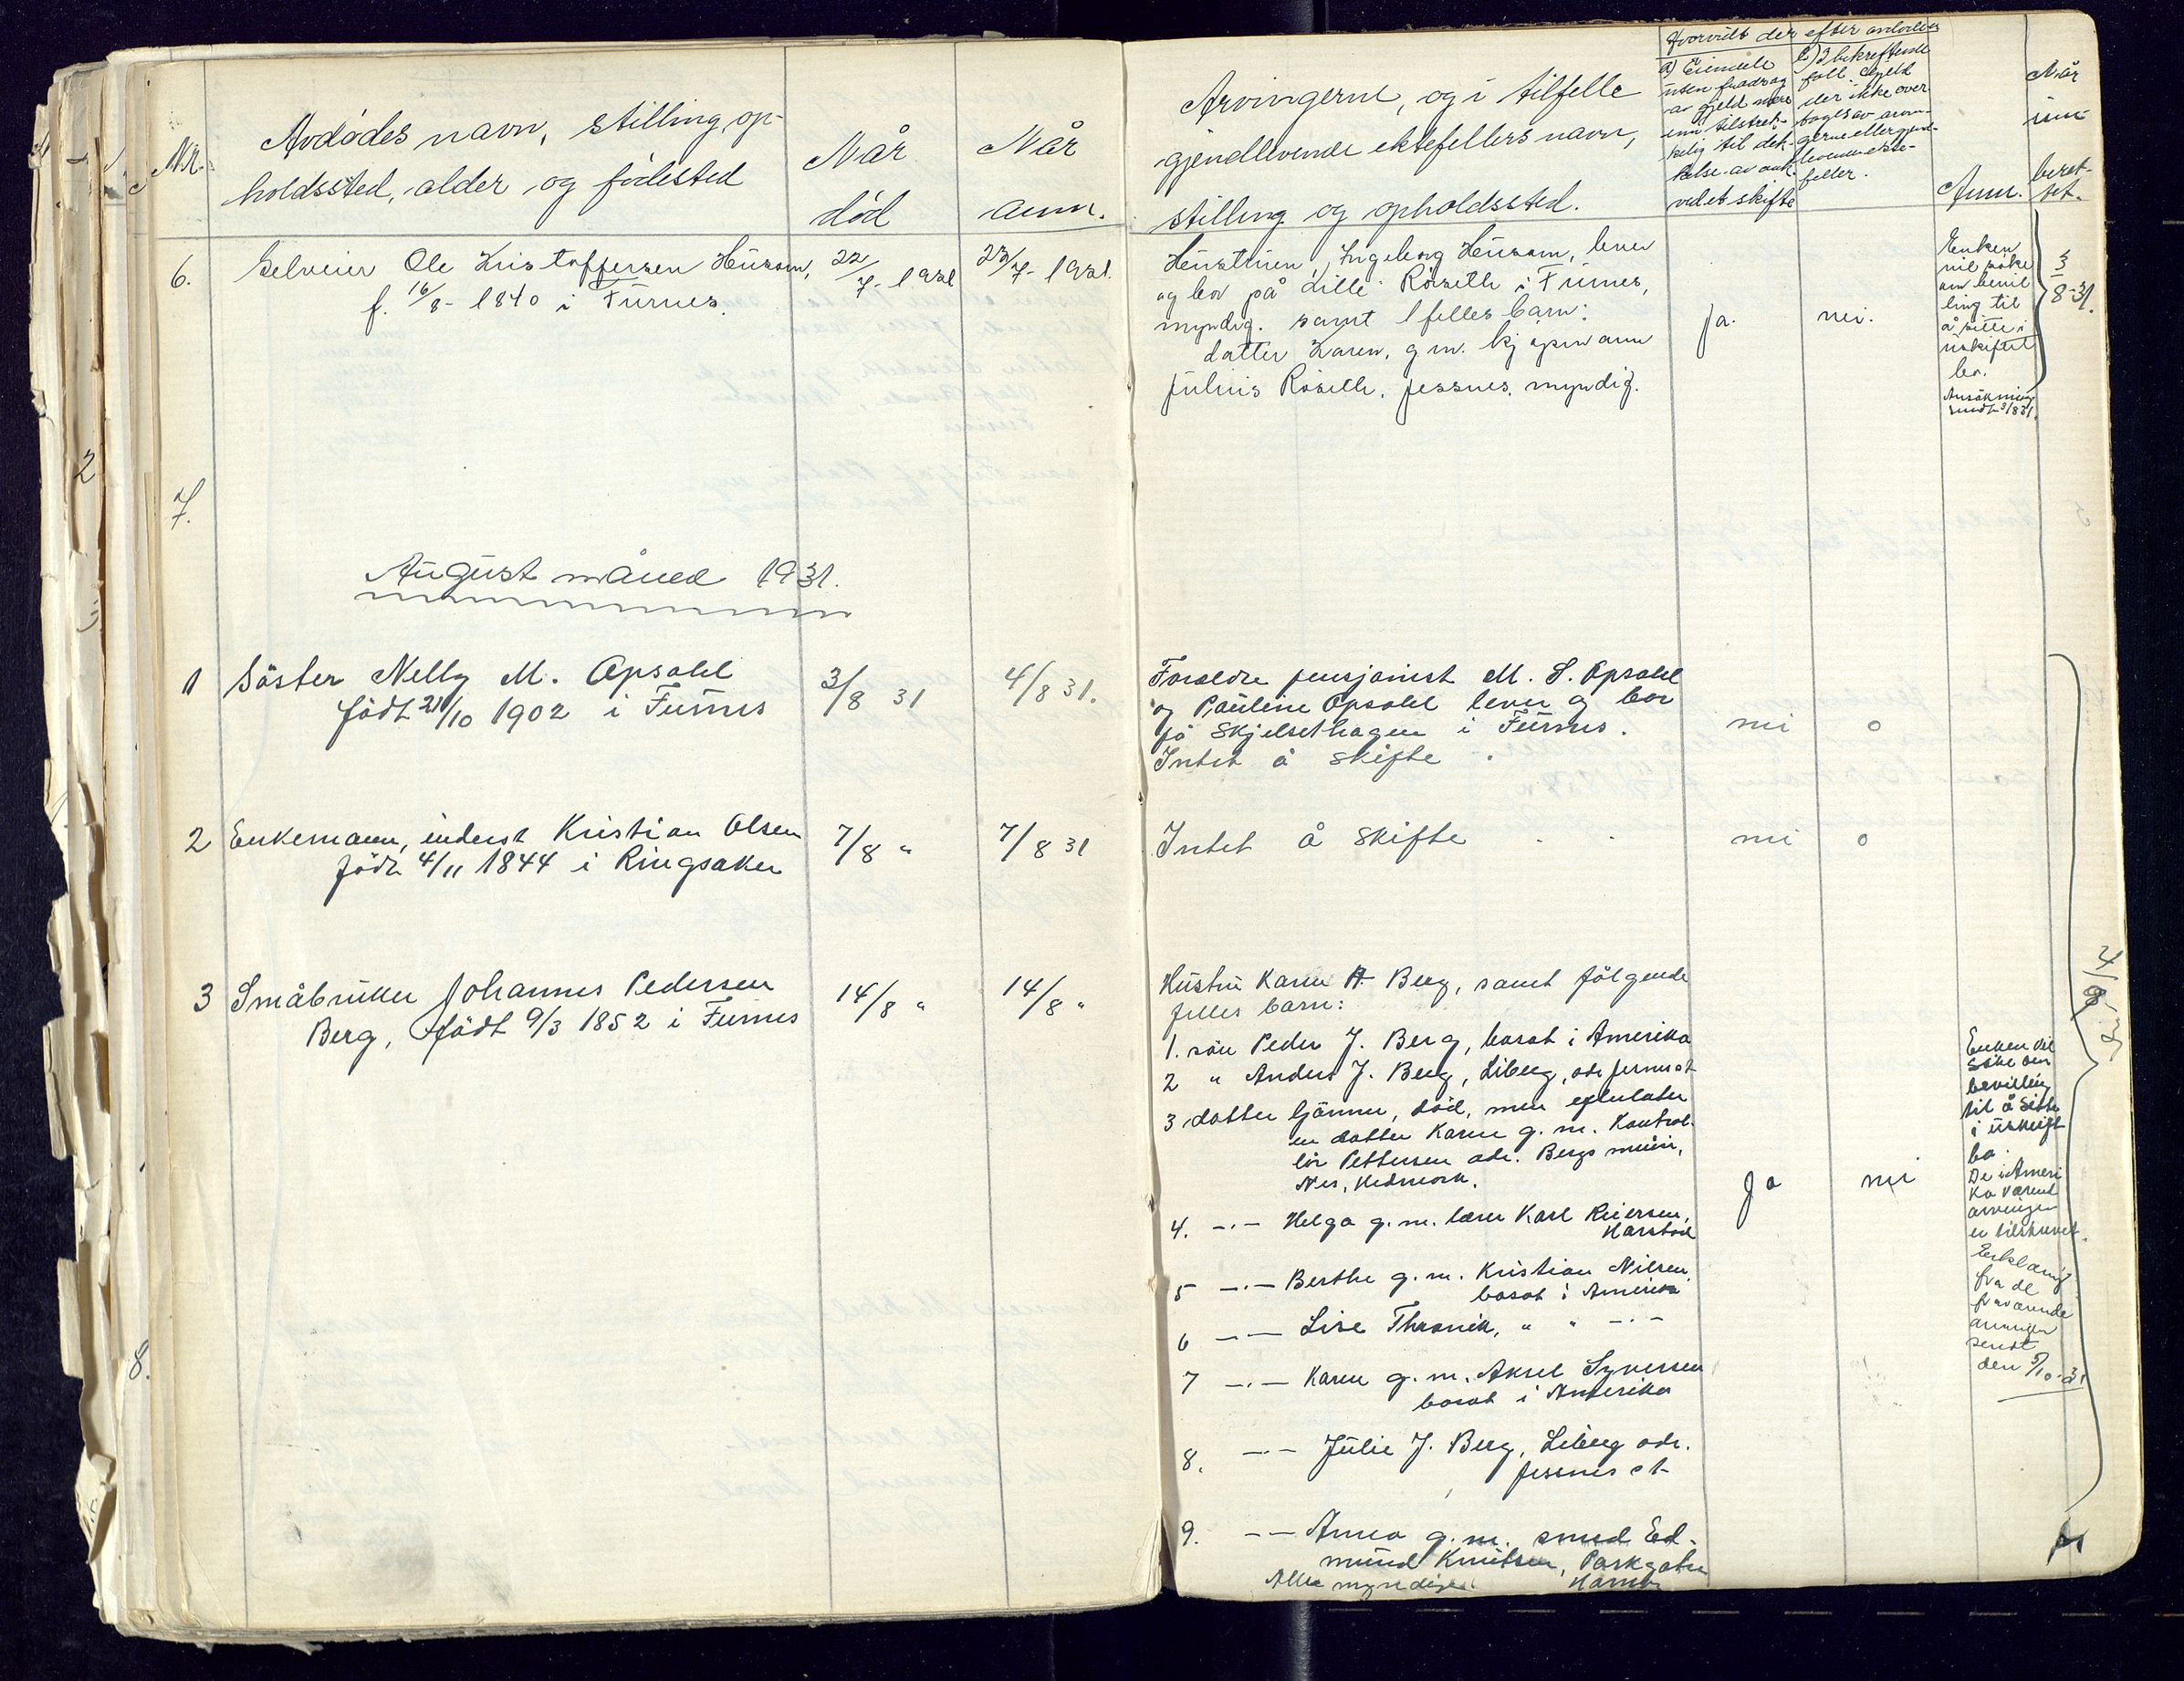 Nr.
Avdødes navn, stilling, op-
holdssted, alder og fødested
Når
død
Når
anm.
Arvingerne, og i tilfelle
gjenlevende ektefellers navn,
stilling og opholdssted.
Hvorvidt der efter avdødes
a) Eiendele
uten fradrag
av gjeld være
enn tilstrek-
kelig til dek-
kelse av omk.
ved et skifte
b) I bekreftende
fall. Gjeld
der ikke over
tages av arvin-
gerne eller gjen-
levende ekte-
feller.
Anm.
Når
inn-
beret-
tet.
6.
Selveier Ole Kristoffersen Heusom,
f. 16/8- 1840 i Furnes.
22/7- 1931
23/7- 1931.
Heustruen, Ingeborg Heusom, lever
og bor på Lille Röiselli i Furnes,
myndig. samt 1 felles barn:
datter Karen, g m. kjøpmann
Julius Röselli, Jessnes, myndig.
Ja.
nei.
Enken
vil søke
om bevil
ling til
å sitte i
uskiftet
bo.
Ansökning
sendt 3/8 31.
3/8-31.
7.
August måned 1931.
1
Söster Nelly M. Opsahl
født 21/10 1902 i Furnes
3/8 31
4/8 31.
Foreldre pensjonist M. S. Opsahl
og Pauline Opsahl lever og bor
på Skjelsethagen i Furnes.
Intet å skifte .
nei
o
2
Enkemann, inderst Kristian Olsen
född 4/11 1844 i Ringsaker
7/8 "
7/8 31
Intet å skifte
nei
o
3
Småbruker Johannes Pedersen
Berg, født 9/3 1852 i Furnes
14/8 "
14/8 "
Hustru Karen A Berg, samt følgende
felles barn:
1. sön Peder J. Berg, bosat i Amerika
2 " Anders J. Berg, Liberg, adr Jessnes st
3 datter Gjönner, död, men efterlater
en datter Karen g. m. Kontrol-
lör Pettersen adr. Bergs meieri,
Nes, Hedmark.
4. -.- Helga g. m. lærer Karl Reiersen,
Harstad
5 -.- Berthe g. m. Kristian Nilsen
bosat i Amerika
6 -.- Lise Thronik, " " -.-
7 -.- Karen g. m. Aksel Syversen
bosat i Amerika
8. -.- Julie J. Berg, Liberg adr.
Jessnes st
9. -.- Anna g. m. smed Ed-
mund Knutsen, Parkgaten
Hamar
Alle myndige
Ja
nei
Enken vil
søke om
bevilling
til å sitte
i uskift
bo.
De i Ameri
ka værend
arvinger
er tilskrevet.
Erklæring
fra de
fraværende
arvinger
sendt
den 5/10-31
4/9
2
8.